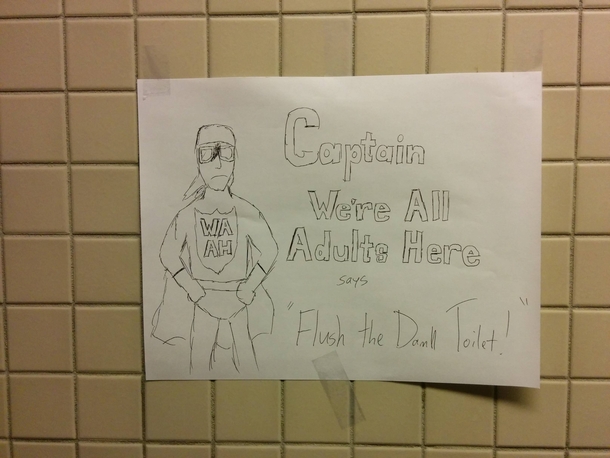 WA
AH
Captain
We're All
Adults Here
says
"Flush the Damn Toilet!"